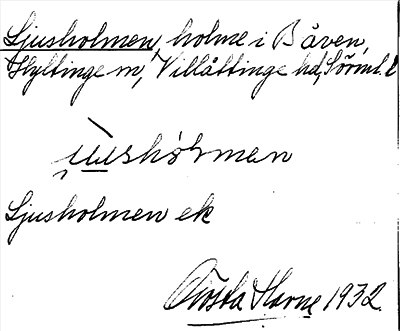 Ljusholmen, holme i Båven,
Hyltinge sn, Villåttinge hd, Sörml. l
Ljusholmen ek
Gösta Harne 1932.